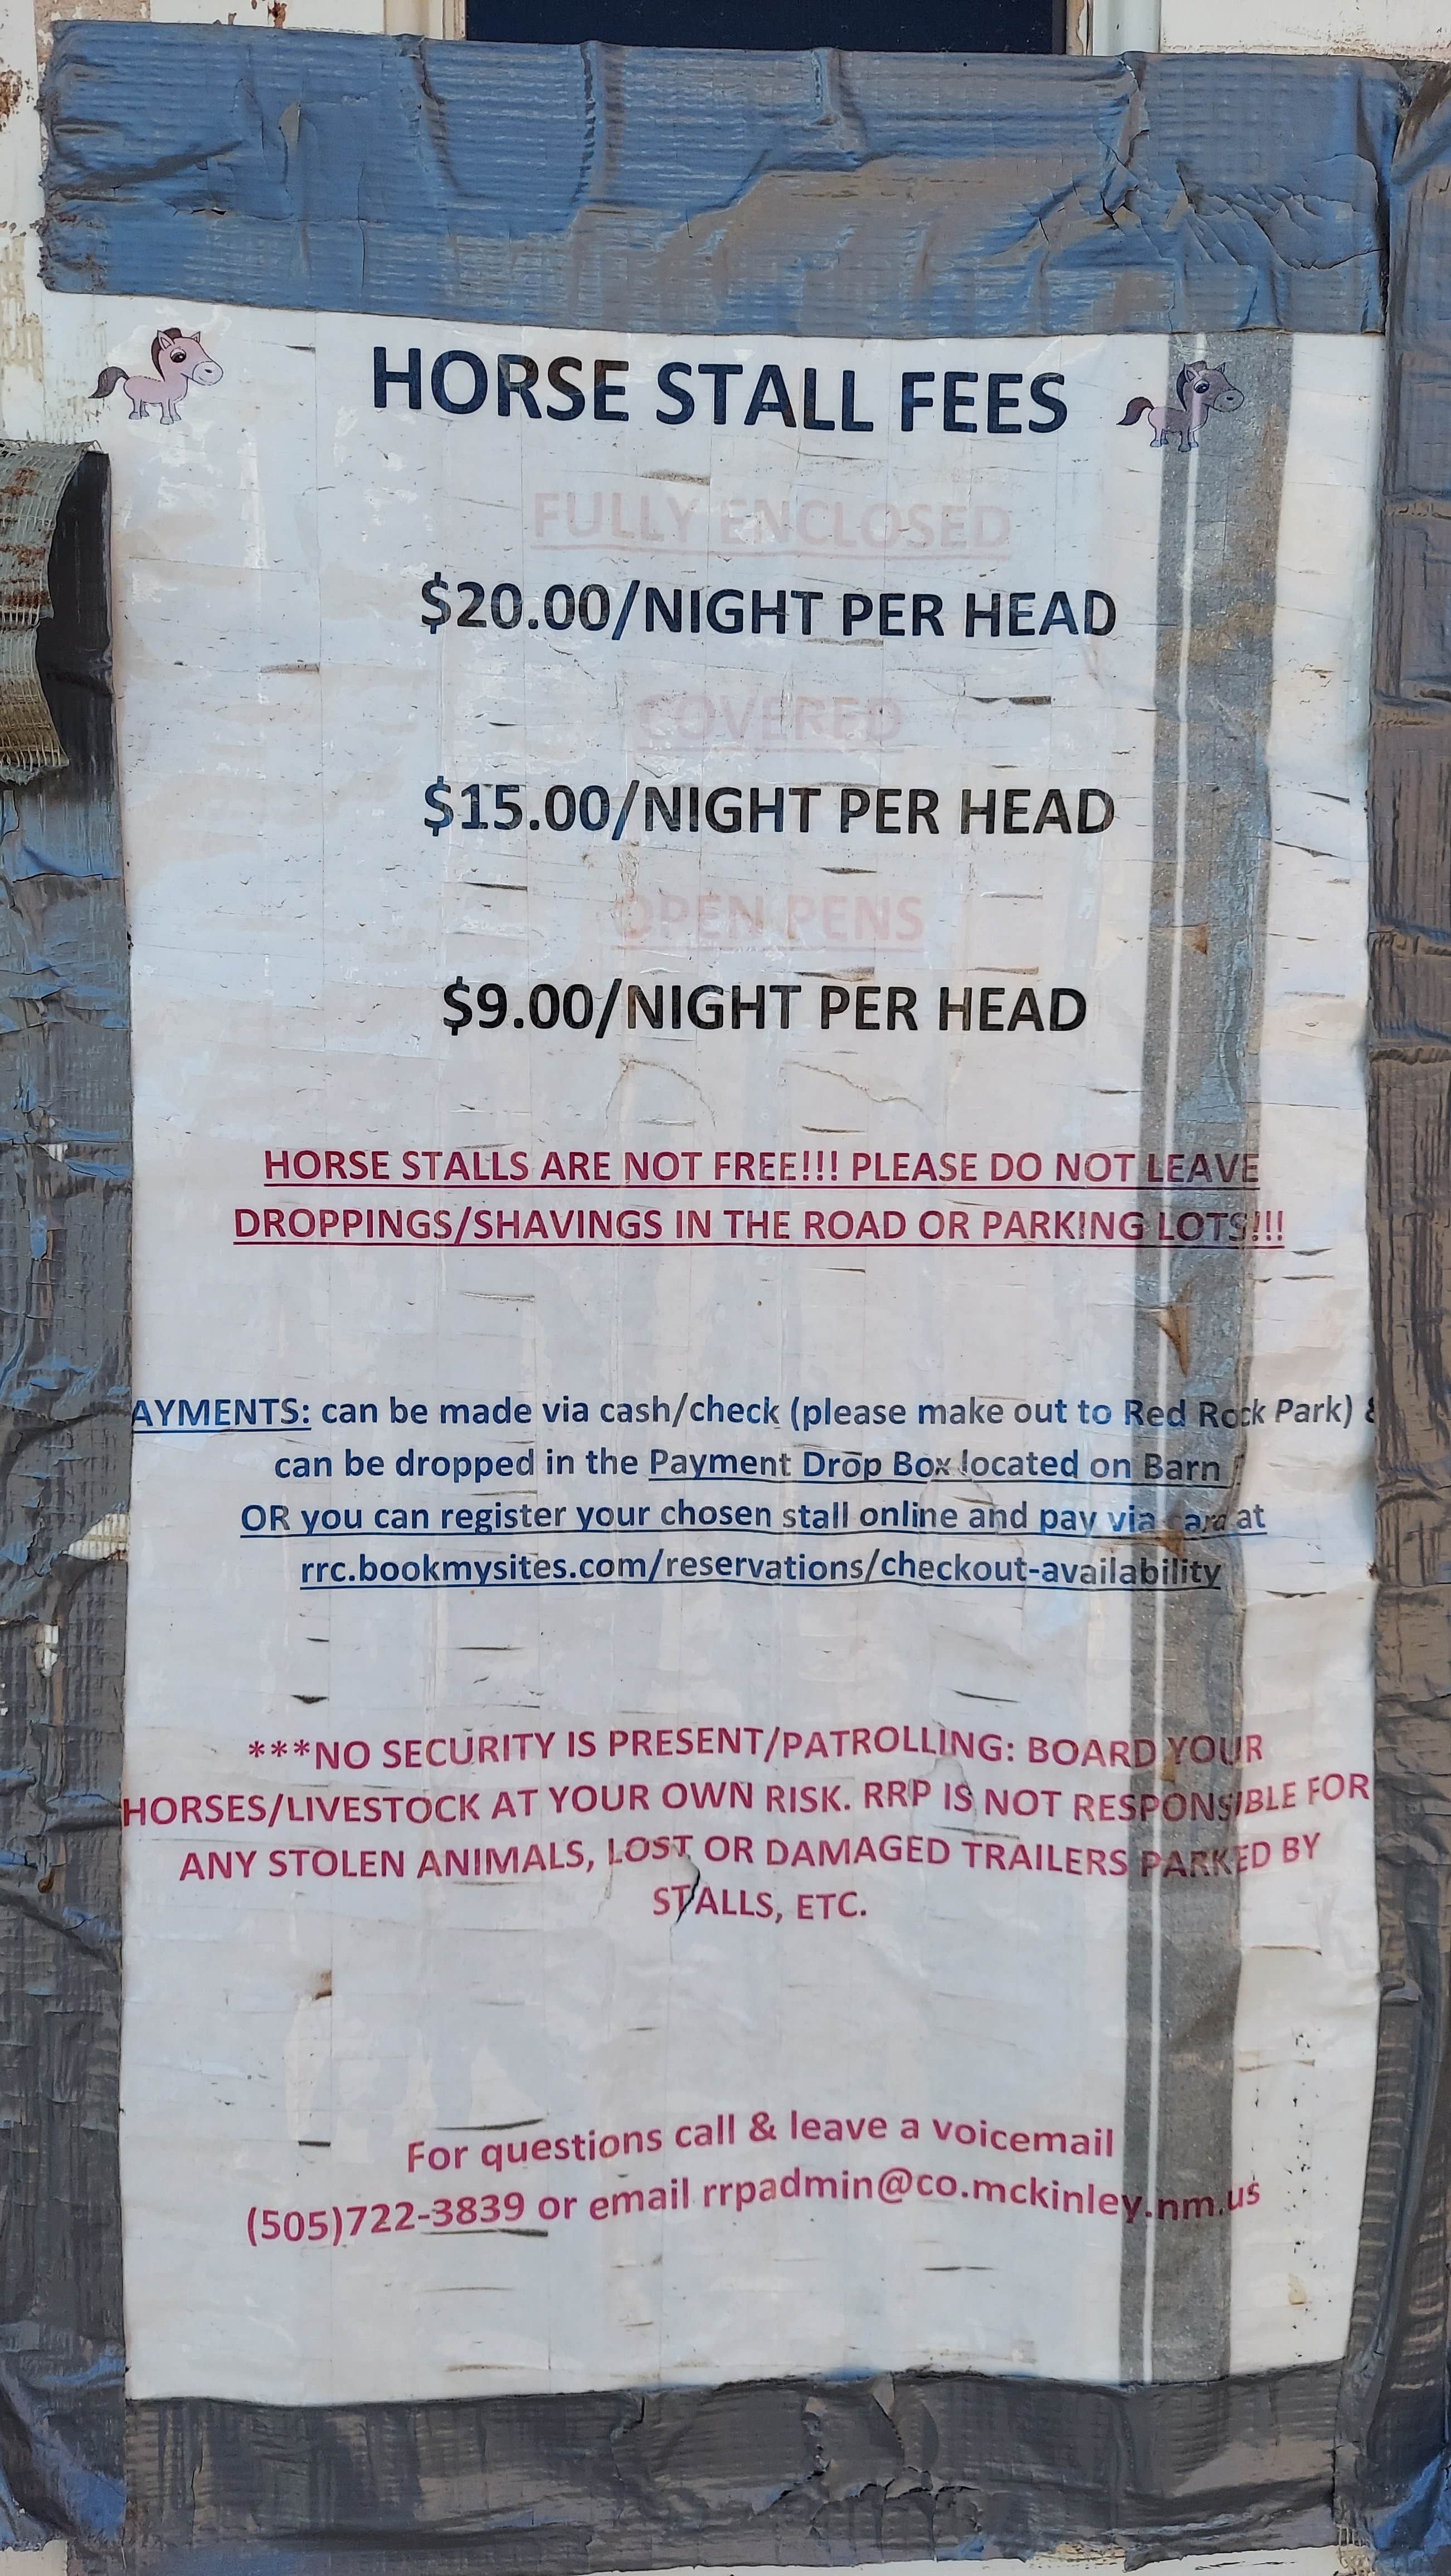 HORSE STALL FEES
FULLY ENCLOSED
$20.00/NIGHT PER HEAD
COVERED
$15.00/NIGHT PER HEAD
OPEN PENS
$9.00/NIGHT PER HEAD
HORSE STALLS ARE NOT FREE!!! PLEASE DO NOT LEAVE
DROPPINGS/SHAVINGS IN THE ROAD OR PARKING LOTS!!!
AYMENTS: can be made via cash/check (please make out to Red Rock Park) &
can be dropped in the Payment Drop Box located on Barn
OR you can register your chosen stall online and pay via card at
rrc.bookmysites.com/reservations/checkout-availability
***NO SECURITY IS PRESENT/PATROLLING: BOARD YOUR
HORSES/LIVESTOCK AT YOUR OWN RISK. RRP IS NOT RESPONSIBLE FOR
ANY STOLEN ANIMALS, LOST OR DAMAGED TRAILERS PARKED BY
STALLS, ETC.
For questions call & leave a voicemail
(505)722-3839 or email rrpadmin@co.mckinley.nm.us